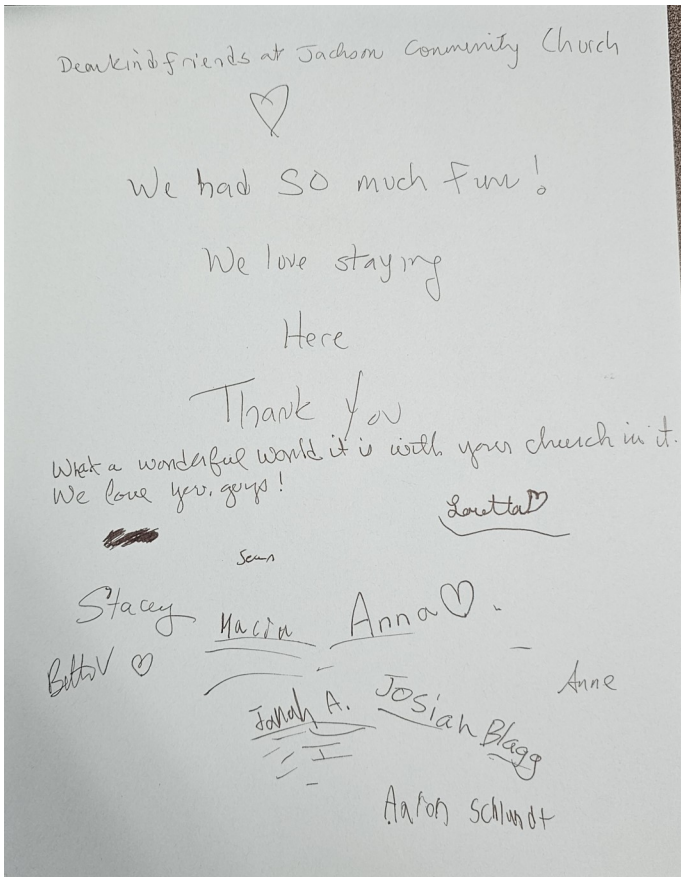 Dear kind friends at Jackson Community Church
We had SO much Fun!
We love staying
Here
Thank You
What a wonderful world it is with your church in it.
We love you, guys!
Loretta
Sean
Stacey
Macin
Anna
Anne
Jonah A.
Josiah Blagg
Aaron Schlundt